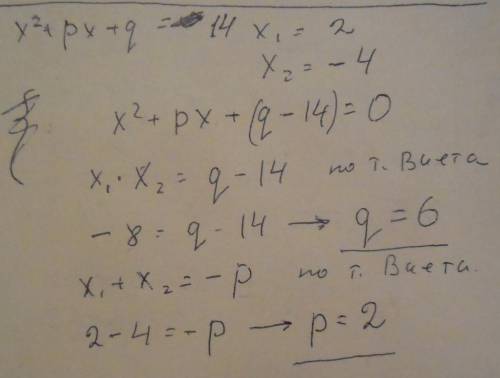 x²+px+q = 14 x₁ = 2
x₂ = -4
x² + px + (q - 14) = 0
x₁ · x₂ = q - 14 по т. Виета
- 8 = q - 14 → q = 6
x₁ + x₂ = - p по т. Виета.
2 - 4 = - p → p = 2